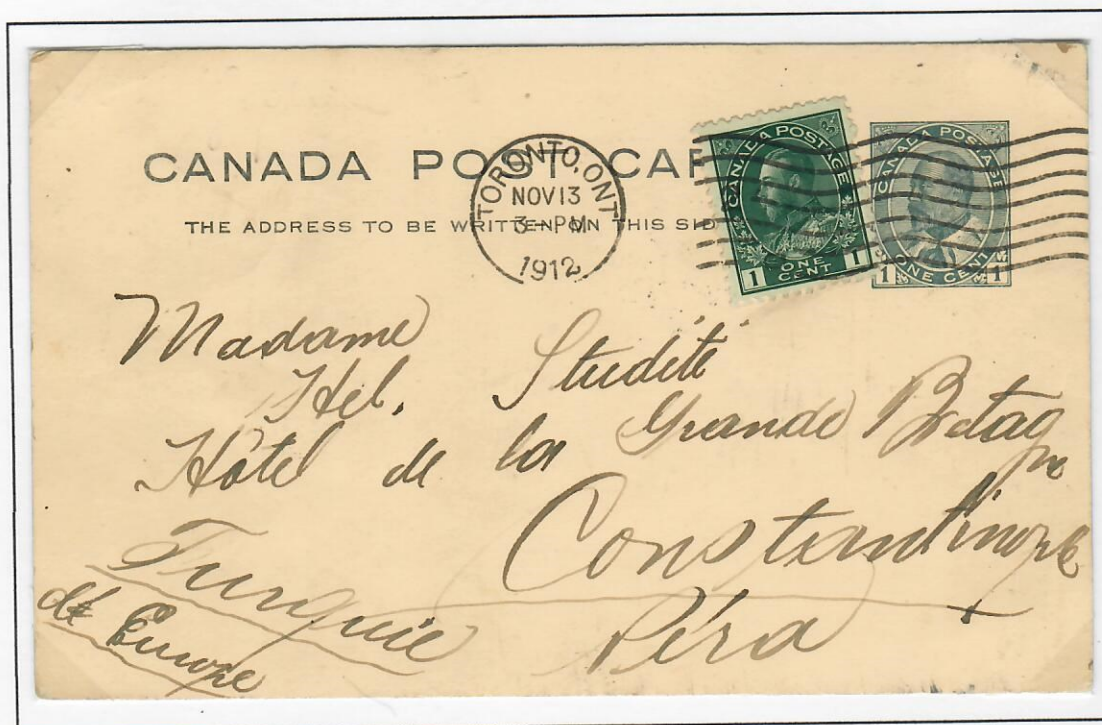 CANADA POST CAR
THE ADDRESS TO BE WRITTEN ON THIS SID
TORONTO, ONT.
NOV 13
3-PM
1912
CANADA POSTAGE
ONE
CENT
1 1
CANADA POSTAGE
ONE CENT
1 1
Madame
Hel. Studité
Hôtel de la Grande Bretagne
Constantinople
Péra
Turquie
d'Europe